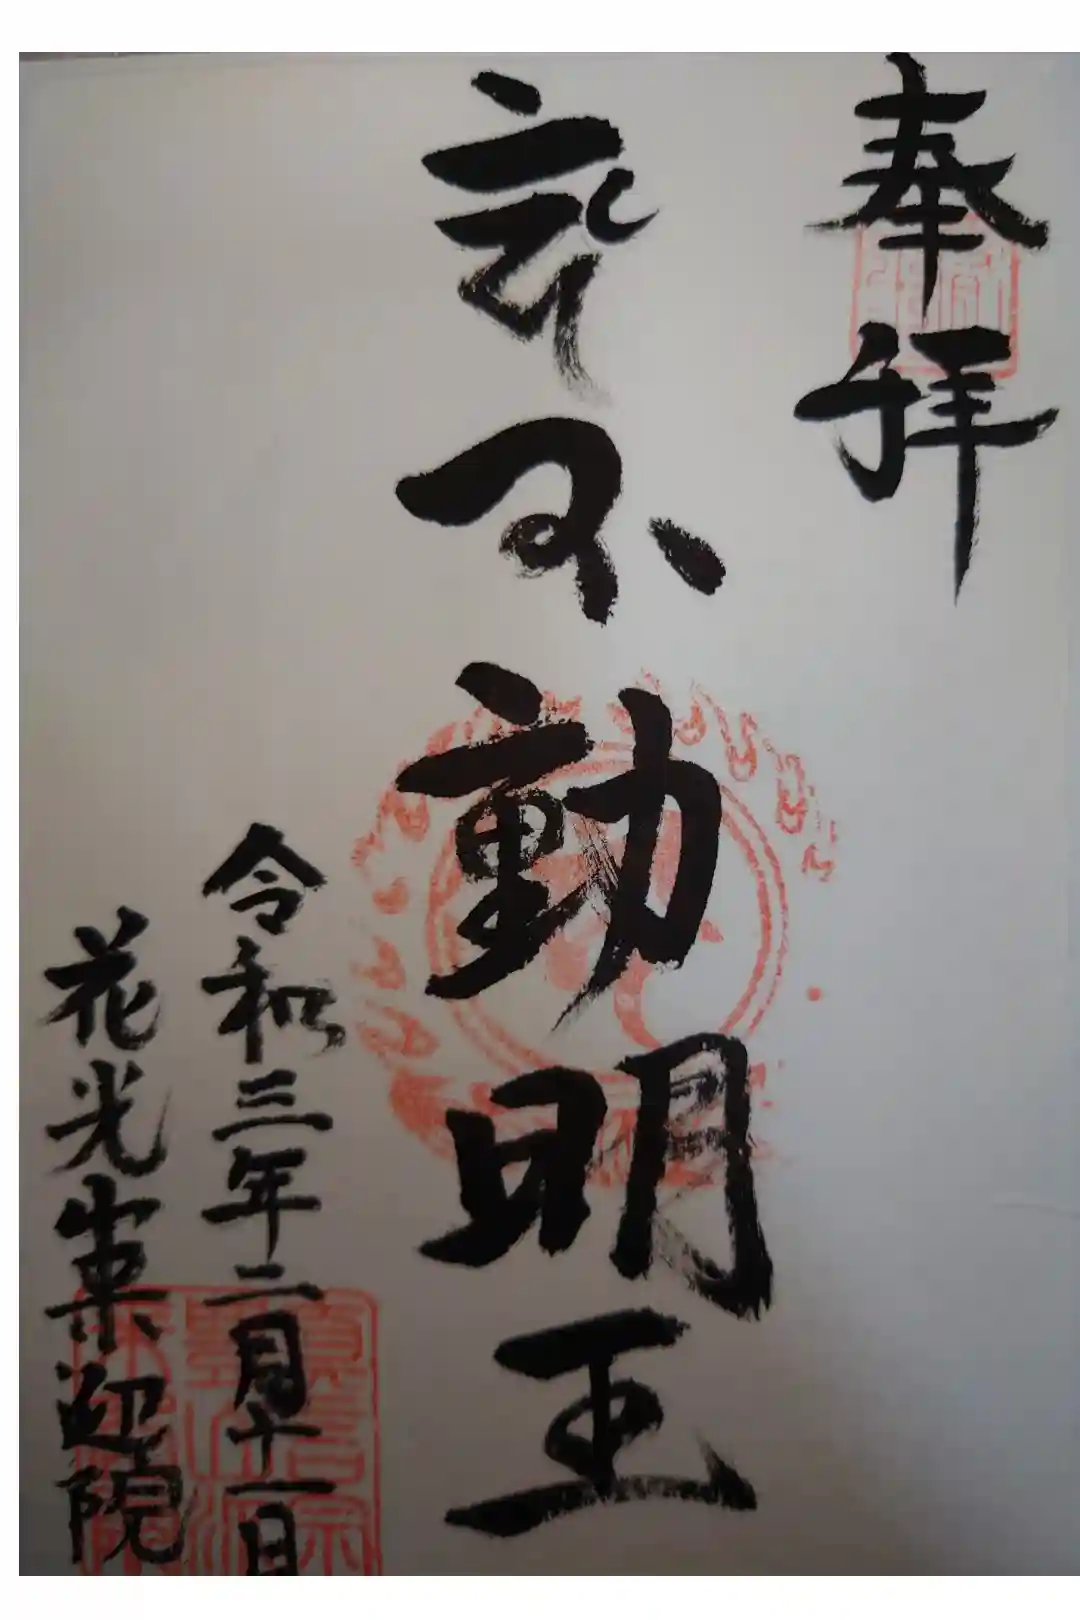 奉拝
不動明王
令和三年二月十一日
花光山来迎院
真言宗